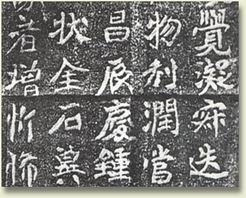 覺凝寂迭
物利潤當
昌辰慶鍾
狀全石冀
者增忻怖